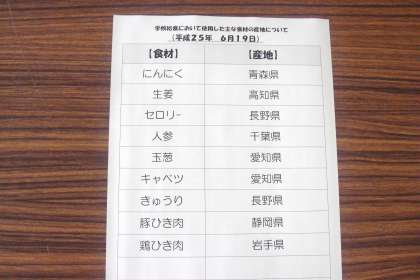 学校給食において使用した主な食材の産地について
(平成25年 6月19日)
【食材】 【産地】
にんにく 青森県
生姜 高知県
セロリー 長野県
人参 千葉県
玉葱 愛知県
キャベツ 愛知県
きゅうり 長野県
豚ひき肉 静岡県
鶏ひき肉 岩手県